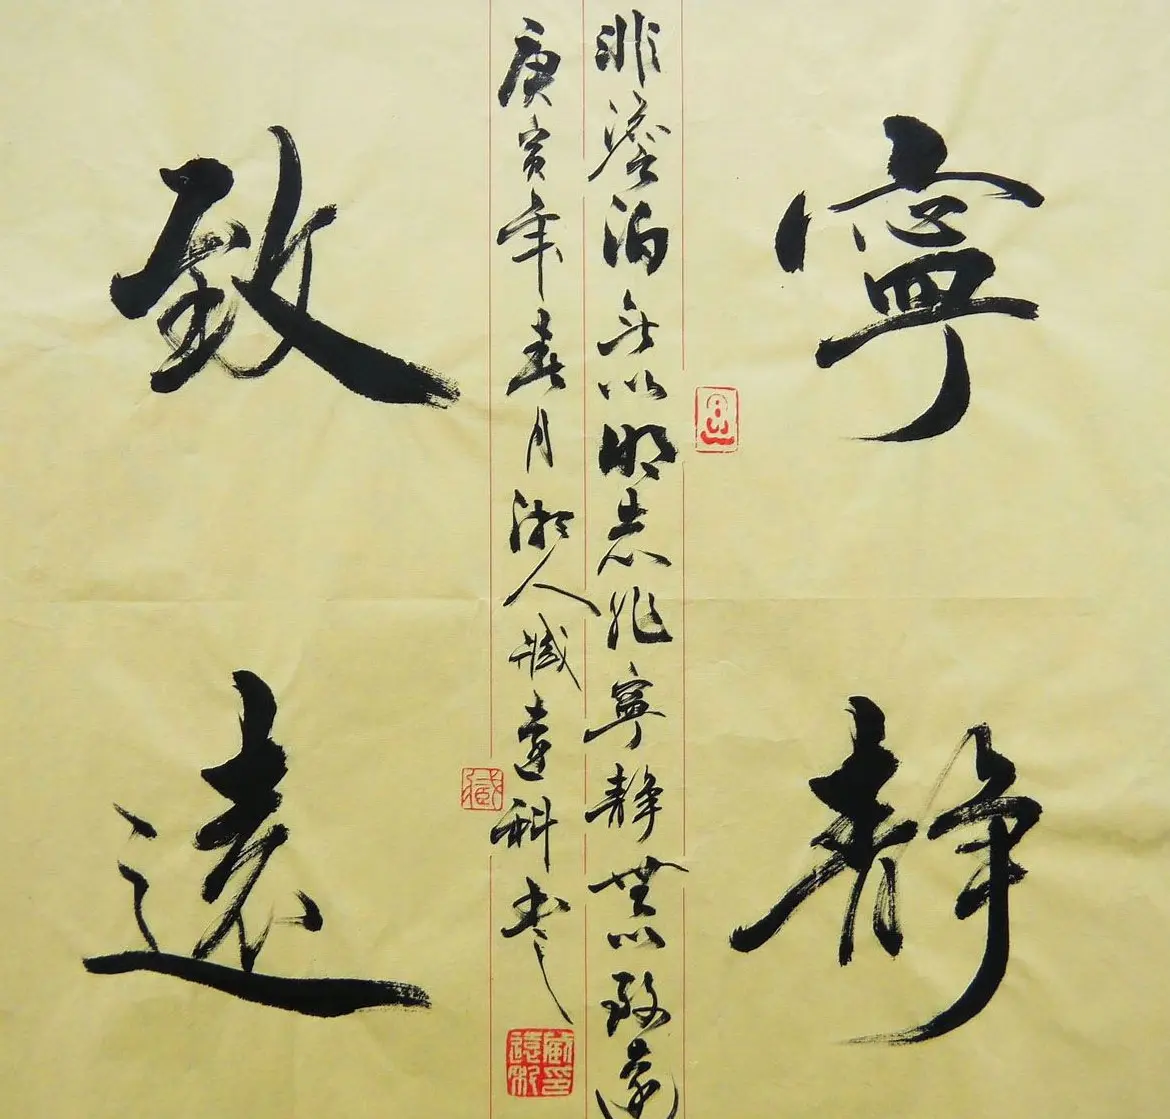 寧靜
非澹泊無以明志非寧靜無以致遠
庚寅年春月湘人臧遠科书
致遠